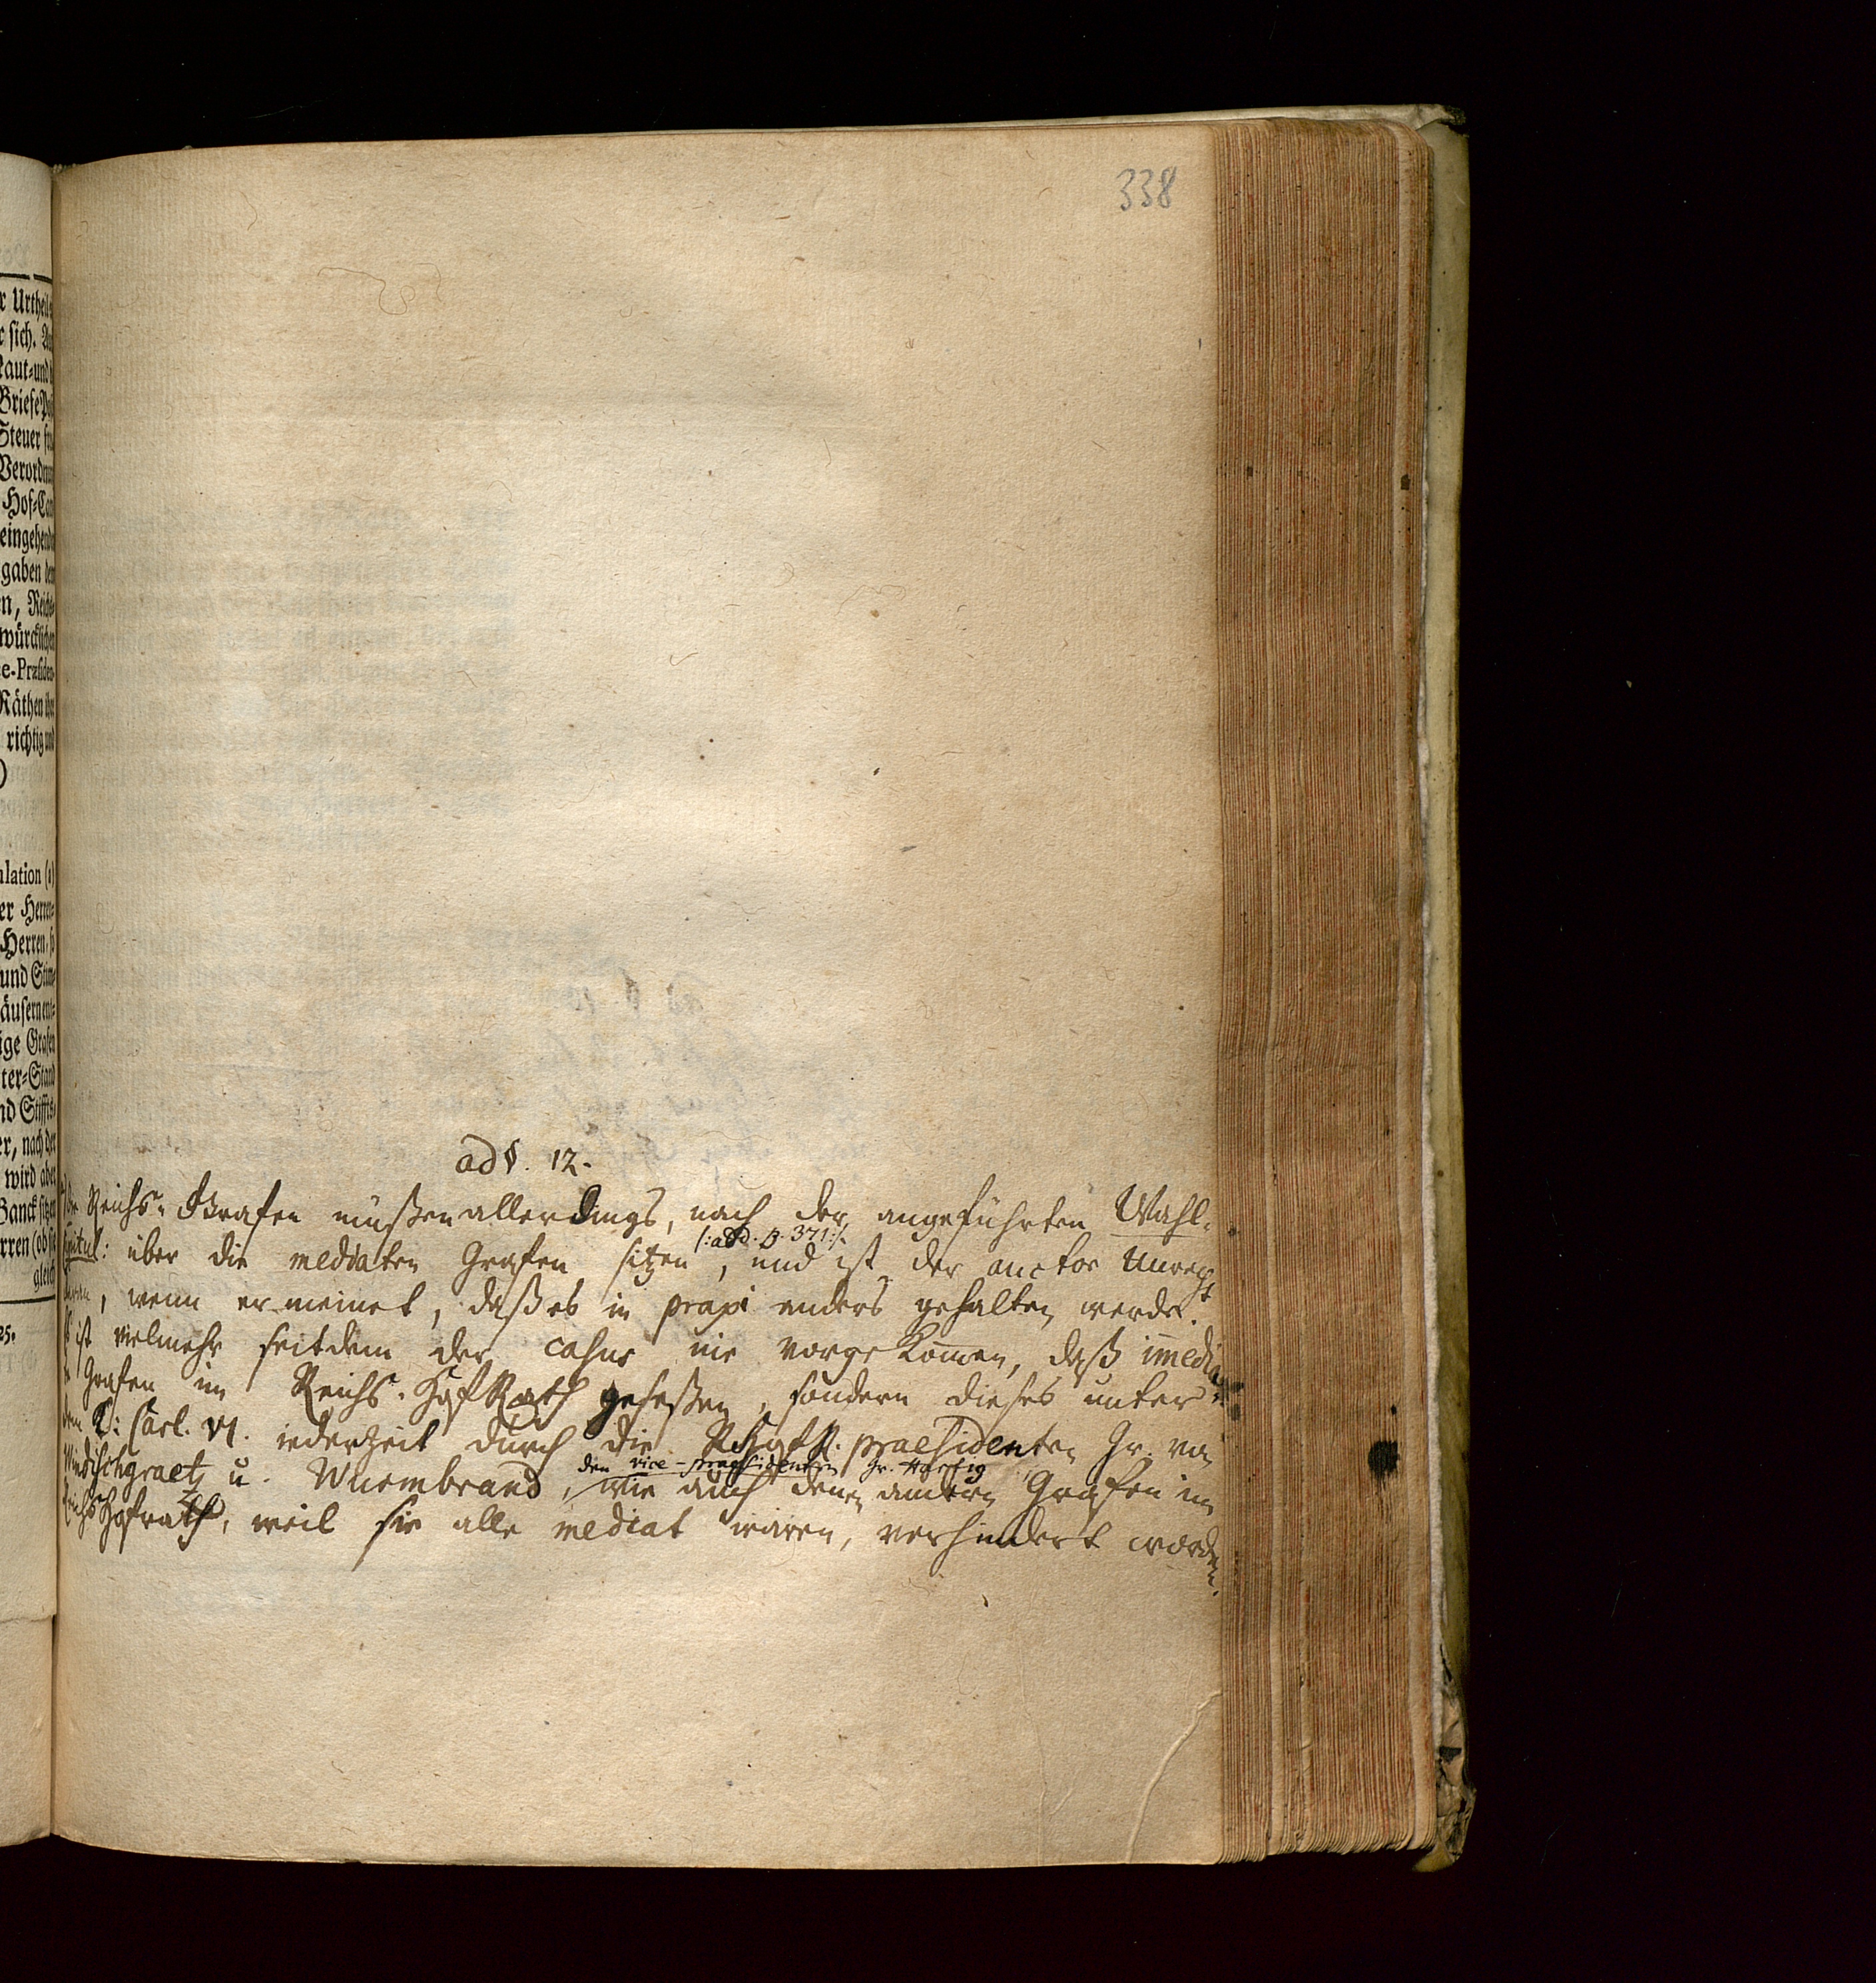 338
r Urtheil
r sich.
aut-und
Briefe
Steuer
Verordnun
Hof-Can
eingehende
gaben den
en, Reichs-
würcklichen
e-Præsiden-
Räthen ihr
richtig und
)
lation (a)
er Herren-
Herren-
und Stim-
äusern
ige Grafen
ter-Stand
nd Stiffts-
er, nach der
wird aber
Banck sitzen
rren (ob sie
gleich
25.
ad §. 12.
die Reichs-Grafen müßen allerdings, nach der angeführten Wahl-
capitul: über die mediaten Grafen sitzen /:add. p. 371:/, und ist der auctor Unrecht
, wenn er meinet, daß es in praxi anders gehalten werde.
Es ist vielmehr seitdem der casus nie vorgekommen, daß immedia-
te Grafen im Reichs-HofRath geseßen, sondern dieses unter
dem K: Carl. VI. iederzeit durch die RHofR. praesidenten Gr. von
Windischgraetz u. Wurmbrand, den vice-praesidenten Gr. Hartig wie auch denen andern Grafen im
ReichsHofrath, weil sie alle mediat waren, verhindert worden.